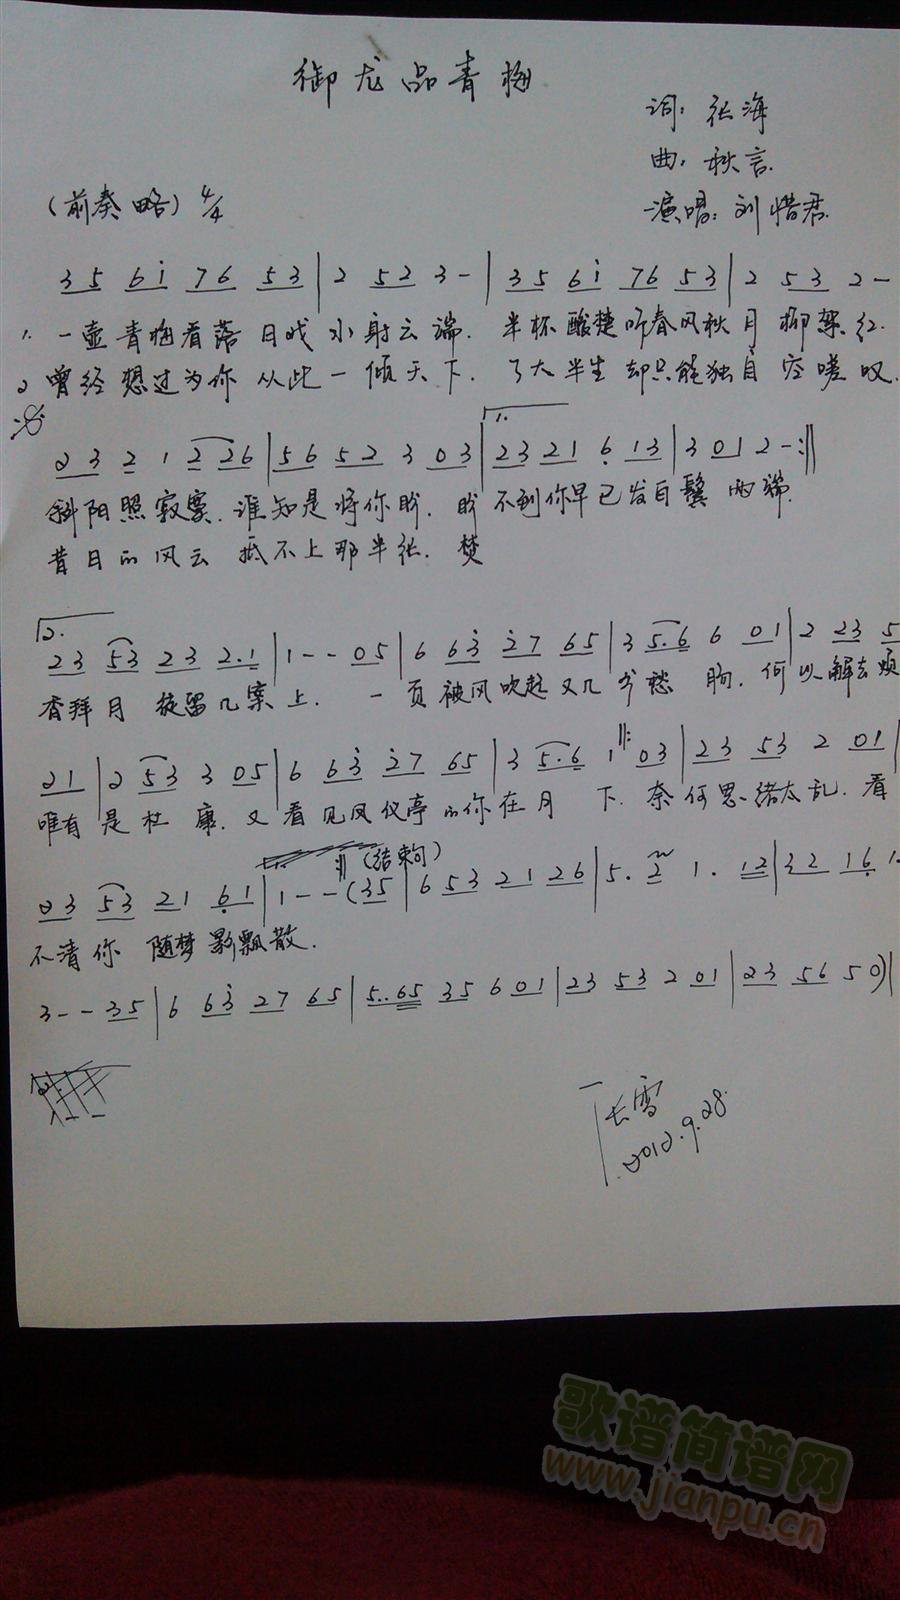 御龙品青梅
词：张海
曲：秋言
演唱：刘惜君
（前奏略）4/4
3 5 6 i 7 6 5 3 | 2 5 2 3 - | 3 5 6 i 7 6 5 3 | 2 5 3 2 -
1. 一壶青梅看落日戏水射云端. 半杯酸楚听春风秋月柳絮红.
2 曾经想过为你从此一倾天下. 了大半生却只能独自空嗟叹.
2 3 2 1 2 2 6 | 5 6 5 2 3 0 3 | 1. 2 3 2 1 6 1 3 | 3 0 1 2 - :||
斜阳照寂寞. 谁知是将你盼. 盼不到你早已发白鬓两端.
昔日的风云抵不上那半张. 焚
2.
2 3 5 3 2 3 2 . 1 | 1 - - 0 5 | 6 6 3 2 7 6 5 | 3 5 . 6 6 0 1 | 2 2 3 5
香拜月 徒留几案上. 一页被风吹起又几分愁肠. 何以解去烦
2 1 | 2 5 3 3 0 5 | 6 6 3 2 7 6 5 | 3 5 . 6 1 ||: 0 3 | 2 3 5 3 2 0 1 |
唯有是杜康. 又看见凤仪亭的你在月下. 奈何思绪太乱. 看
(结束句)
2 3 5 3 2 1 6 1 | 1 - - (3 5 | 6 5 3 2 1 2 6 | 5 . 2 1 . 1 2 | 3 2 1 6 1 .
不清你 随梦影飘散.
3 - - 3 5 | 6 6 3 2 7 6 5 | 5 . . 6 5 3 5 6 0 1 | 2 3 5 3 2 0 1 | 2 3 5 6 5 0) |
长雪
2012.9.28.
歌谱简谱网
www.jianpu.cn